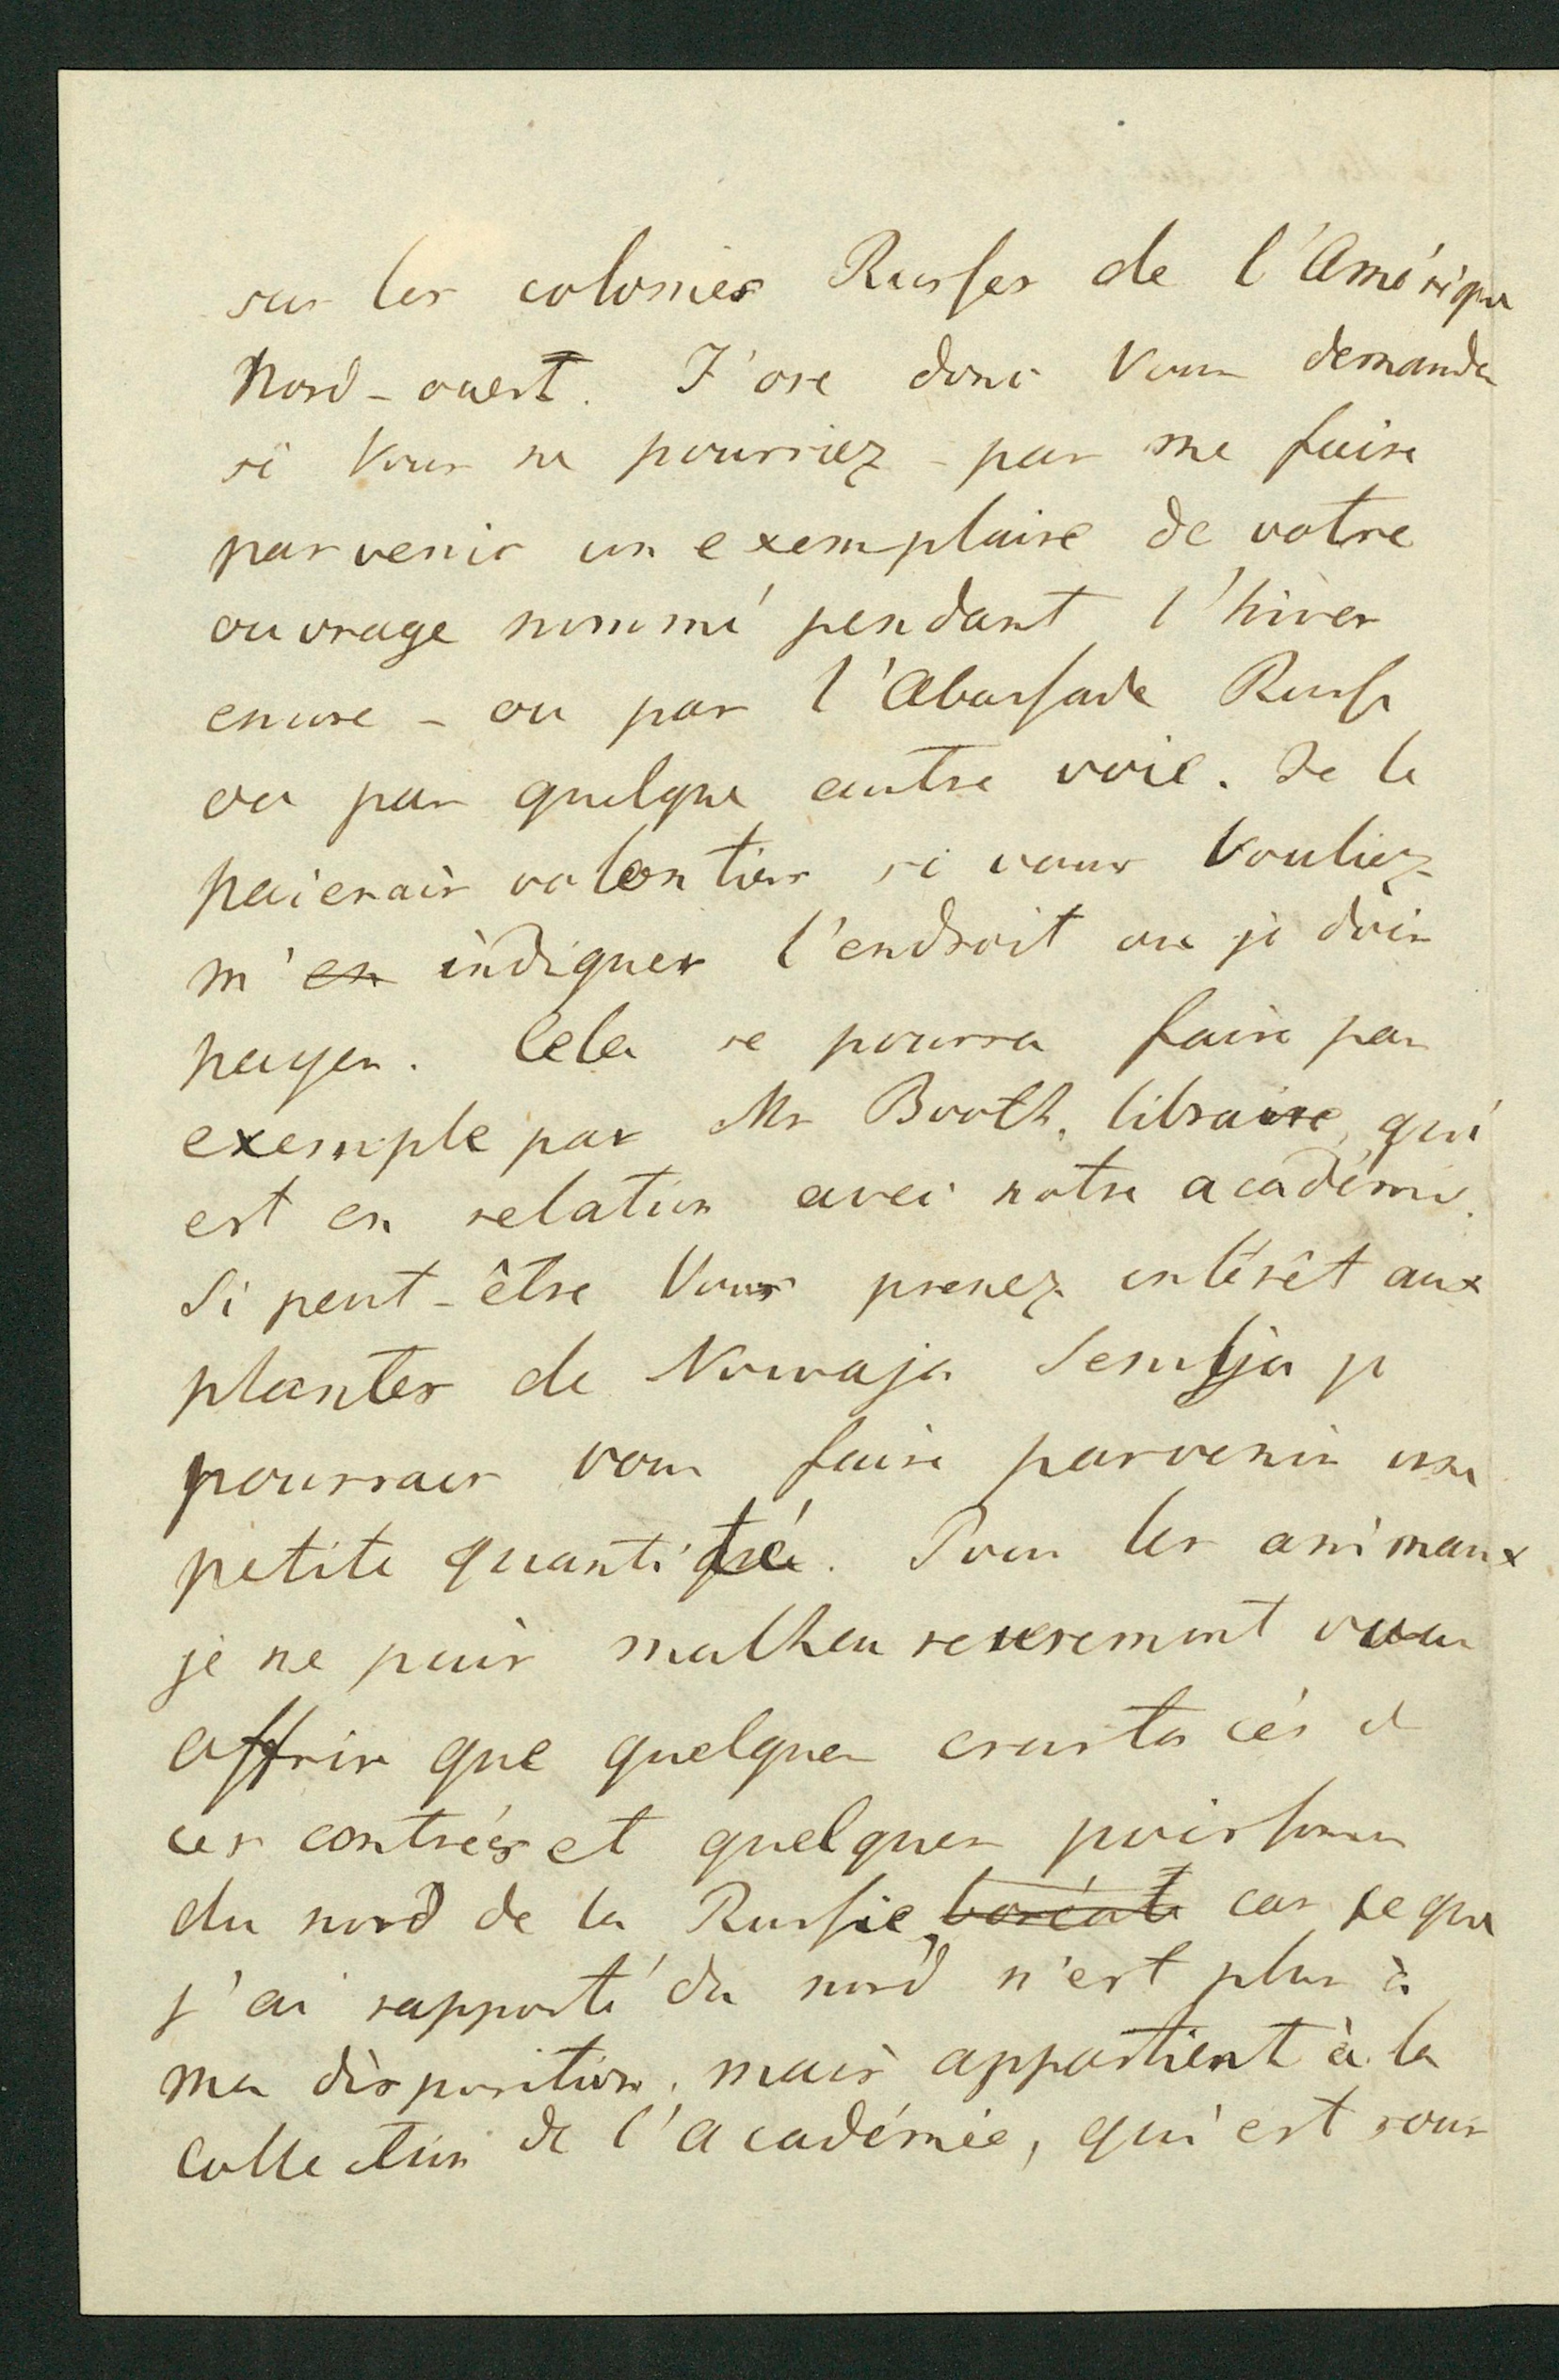 sur les colonies Russes de l'Amérique
Nord-ouest. J'ose donc Vous demander
si Vous ne pourriez-pas me faire
parvenir un exemplaire de votre
ouvrage nommé pendant l'hiver
encore - ou par l'Abassade Russe
ou par quelque autre voie. Je le
paierais volontiers si vous Vouliez
m'en indiquer l'endroit ou je dois
payer. Cela se pourra faire par
exemple par Mr Booth, libraire, qui
est en relation avec notre académie.
Si peut-être Vous prenez intérêt aux
plantes de Nowaja Semlja je
pourrais vous faire parvenir une
petite quantité. Pour les animaux
je ne puis malheureusement vous
offrir que quelques crustacés de
ces contrées et quelques poissons
du nord de la Russie, boréale car ce que
j'ai rapporté du nord n'est plus à
ma disposition, mais appartient à la
collection de l'académie, qui est sous